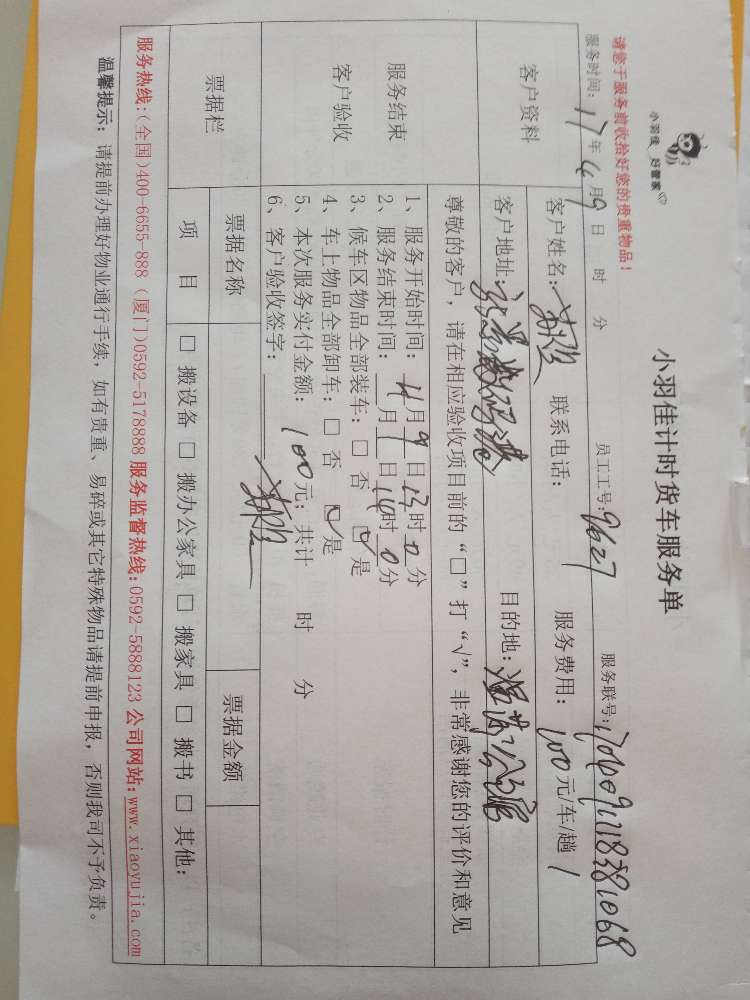 小羽佳 好管家
小羽佳计时货车服务单
请您于服务前收拾好您的贵重物品！
服务时间：17年4月9日 时 分 员工工号：9627 服务联号：
客户资料
客户姓名： 联系电话： 服务费用：100元/车/趟 1
客户地址： 目的地：
尊敬的客户，请在相应验收项目前的“□”打“√”，非常感谢您的评价和意见
服务结束
客户验收
1、服务开始时间：4月9日13时0分
2、服务结束时间： 月 日14时0分
3、候车区物品全部装车：□ 否 ☑ 是
4、车上物品全部卸车：□ 否 ☑ 是
5、本次服务实付金额：100元；共计 时 分
6、客户验收签字：
票据栏
票据名称 票据金额
项 目 □ 搬设备 □ 搬办公家具 □ 搬家具 □ 搬书 □ 其他：
服务热线：(全国)400-6655-888 (厦门)0592-5178888 服务监督热线：0592-5888123 公司网站：www.xiaoyujia.com
温馨提示：请提前办理好物业通行手续，如有贵重、易碎或其它特殊物品请提前申报，否则我司不予负责。